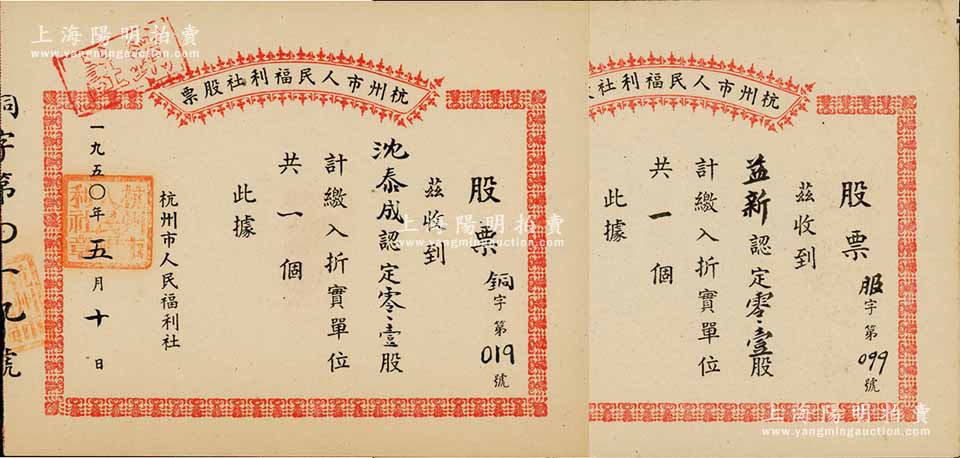 上海陽明拍賣
www.yangmingauction.com
杭州市人民福利社股票
股票
服字第099號
茲收到
益新認定零、壹股
計繳入折實單位
共一個
此據
杭州市人民福利社股票
股票
銅字第019號
茲收到
沈泰成認定零、壹股
計繳入折實單位
共一個
此據
杭州市人民福利社
一九五〇年五月十日
銅字第〇一九號
上海陽明拍賣
www.yangmingauction.com
上海陽明拍賣
www.yangmingauction.com